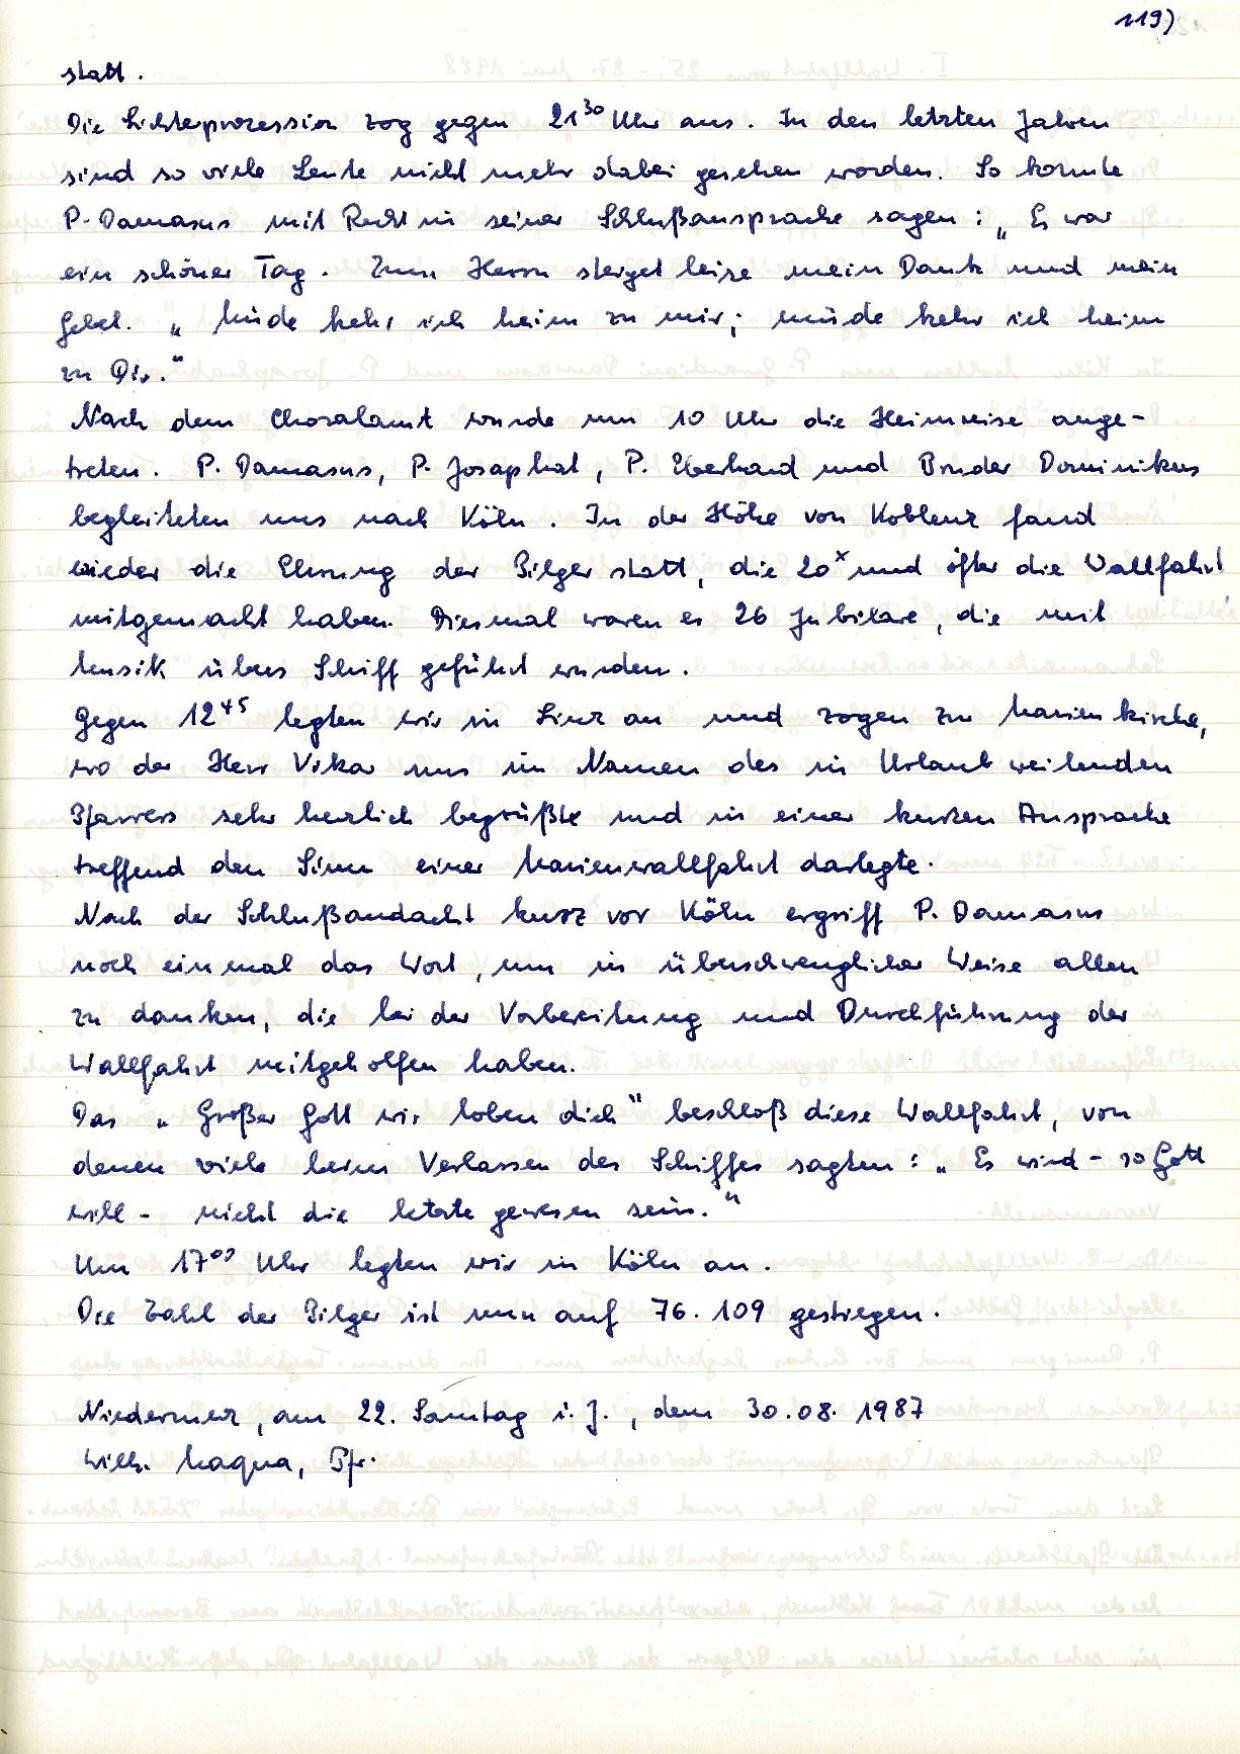 119)
statt.
Die Lichterprozession zog gegen 21³⁰ Uhr aus. In den letzten Jahren
sind so viele Leute nicht mehr dabei gesehen worden. So konnte
P. Damasus mit Recht in seiner Schlußansprache sagen: „Es war
ein schöner Tag. Zum Herrn steiget leise mein Dank und mein
Gebet. „Müde kehr ich heim zu mir; müde kehr ich heim
zu Dir."
Nach dem Choralamt wurde um 10 Uhr die Heimreise ange-
treten. P. Damasus, P. Josaphat, P. Eberhard und Bruder Dominikus
begleiteten uns nach Köln. In der Höhe von Koblenz fand
wieder die Ehrung der Pilger statt, die 20ˣ und öfter die Wallfahrt
mitgemacht haben. Diesmal waren es 26 Jubilare, die mit
Musik übers Schiff geführt wurden.
Gegen 12⁴⁵ legten wir in Linz an und zogen zur Marienkirche,
wo der Herr Vikar uns im Namen des in Urlaub weilenden
Pfarrers sehr herzlich begrüßte und in einer kurzen Ansprache
treffend den Sinn einer Marienwallfahrt darlegte.
Nach der Schlußandacht kurz vor Köln ergriff P. Damasus
noch einmal das Wort, um in überschwenglicher Weise allen
zu danken, die bei der Vorbereitung und Durchführung der
Wallfahrt mitgeholfen haben.
Das „Großer Gott wir loben dich" beschloß diese Wallfahrt, von
denen viele beim Verlassen des Schiffes sagten: „Es wird - so Gott
will - nicht die letzte gewesen sein."
Um 17⁰⁰ Uhr legten wir in Köln an.
Die Zahl der Pilger ist nun auf 76.109 gestiegen.
Niedermerz, am 22. Sonntag i. J., dem 30.08.1987
Wilh. Maqua, Pfr.